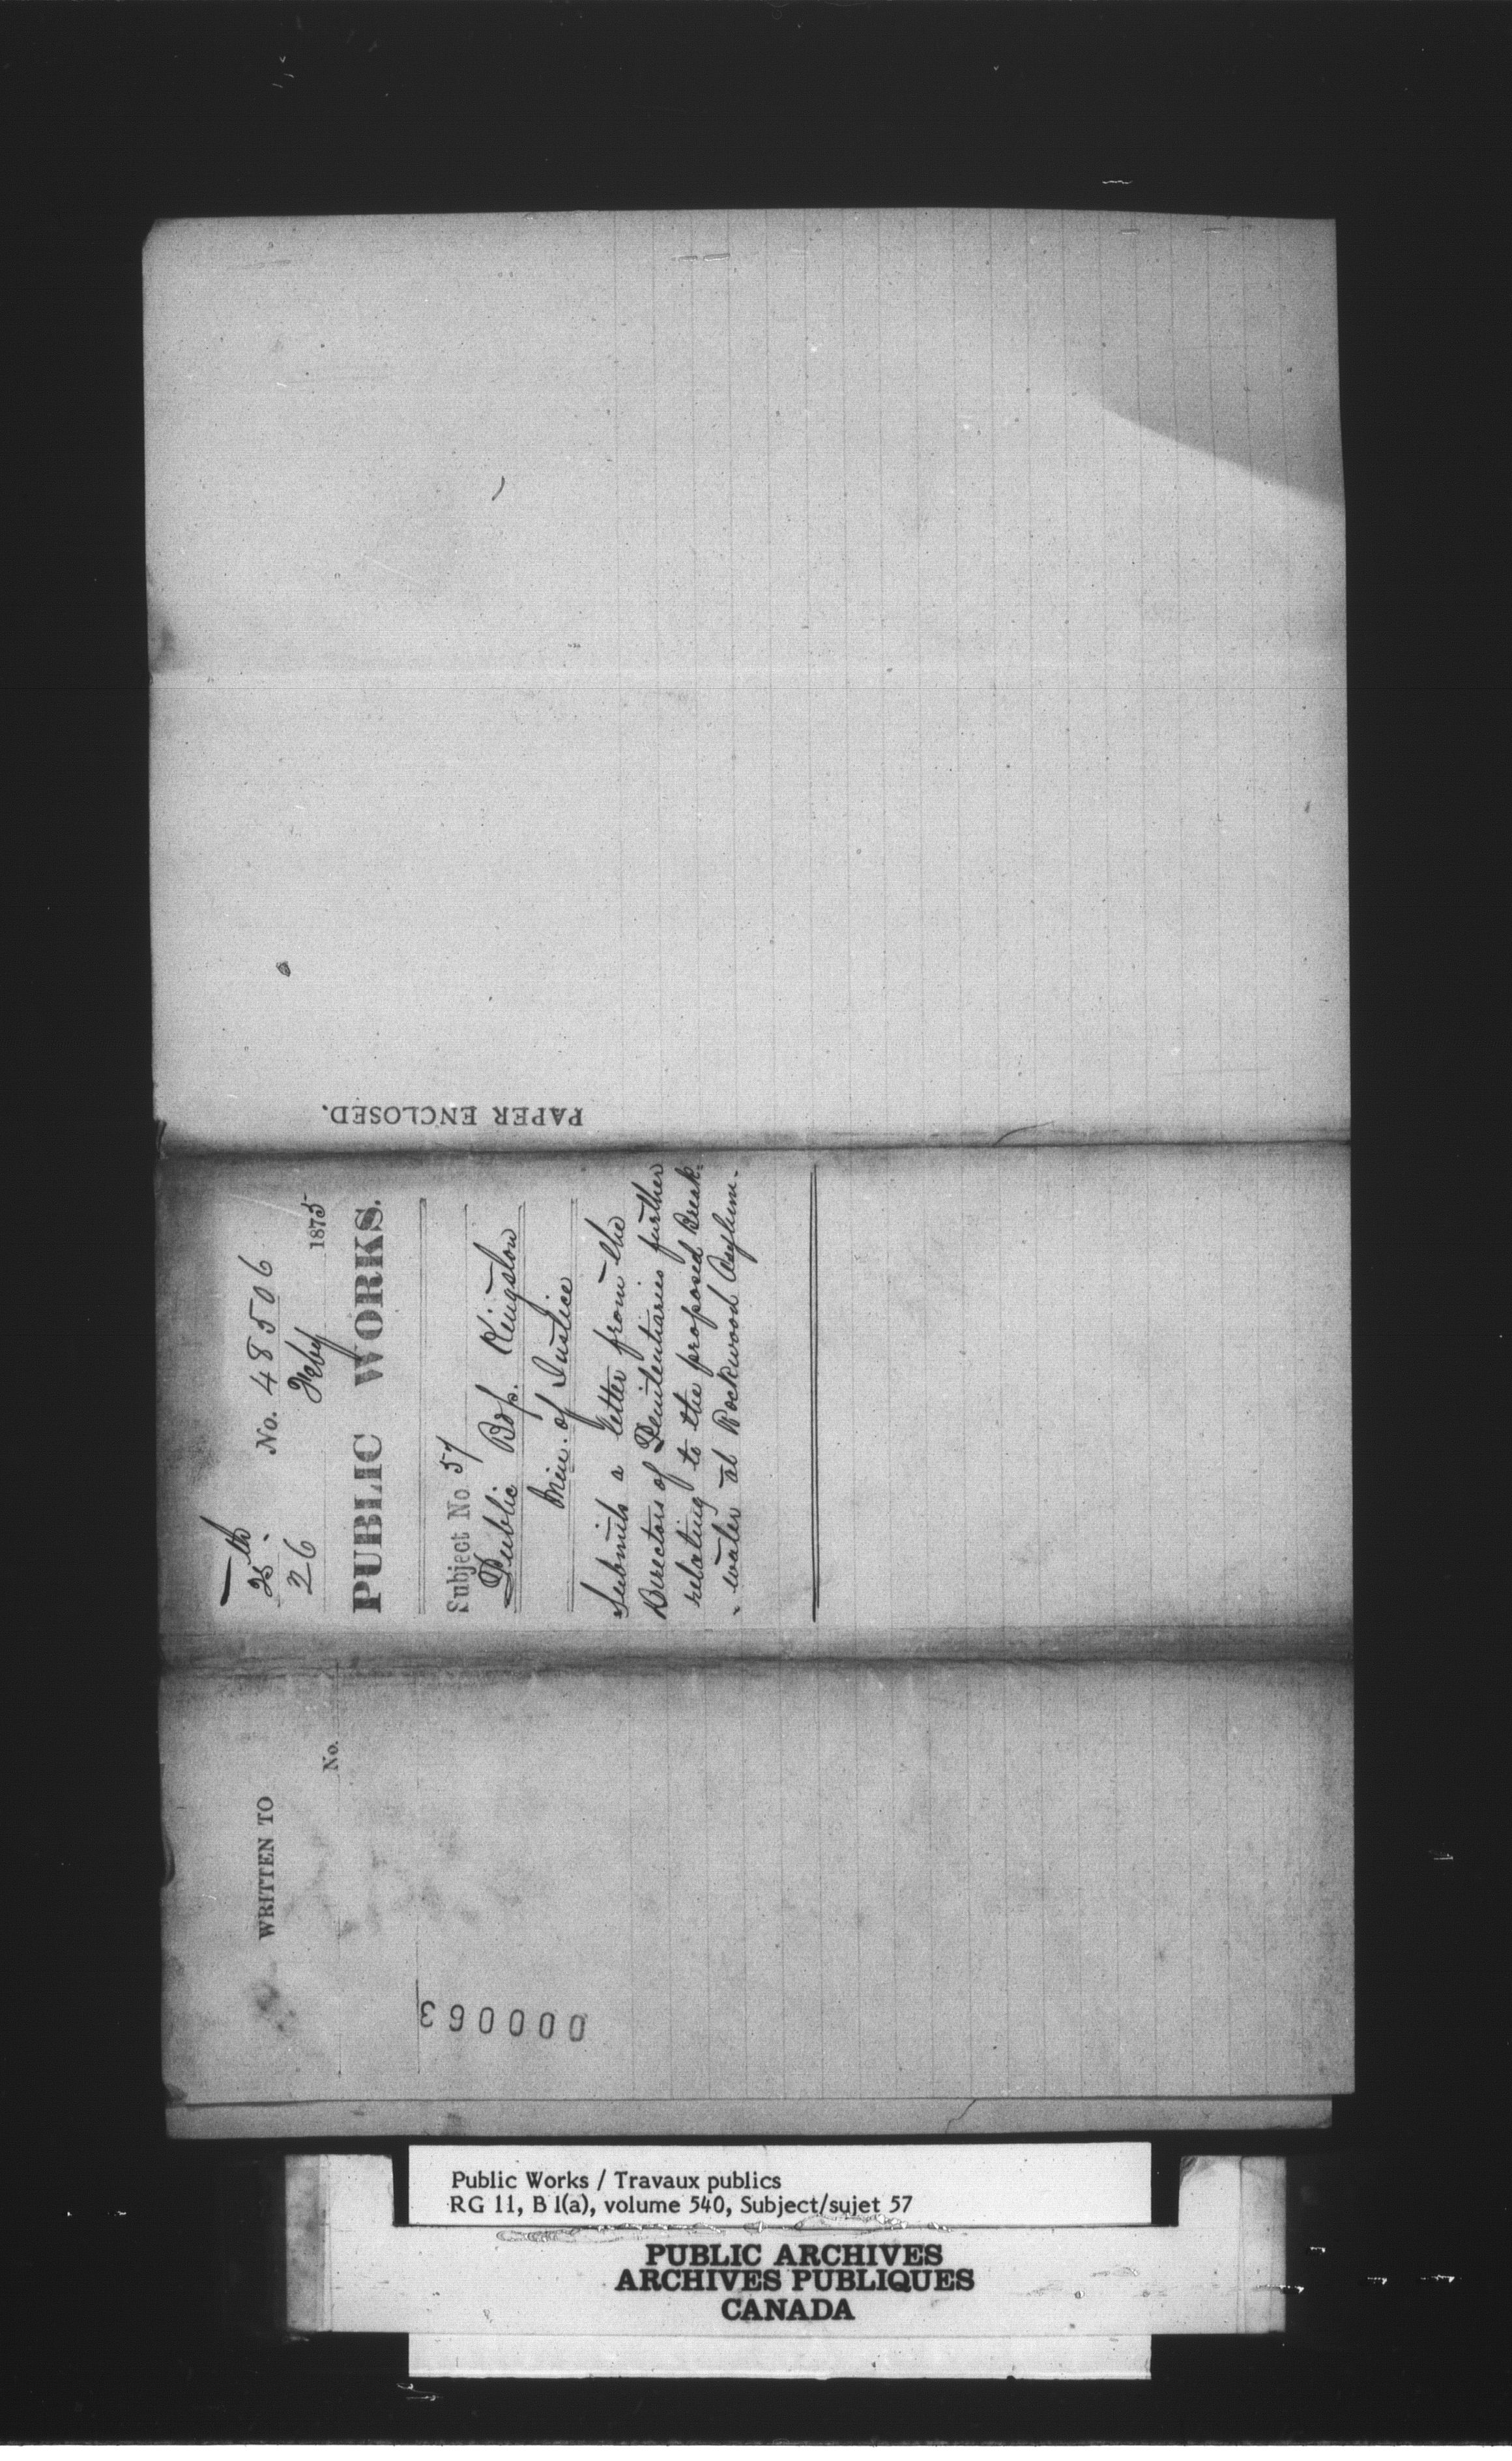 PAPER ENCLOSED.
25th No. 48506
26 Feby 1875
PUBLIC WORKS.
Subject No 57
Public Bds. Kingston
Min. of Justice
Submits a letter from the
Directors of Penitentiaries further
relating to the proposed Break-
-water at Rockwood Asylum.
WRITTEN TO
No.
000063
Public Works / Travaux publics
RG 11, B 1(a), volume 540, Subject/sujet 57
PUBLIC ARCHIVES
ARCHIVES PUBLIQUES
CANADA